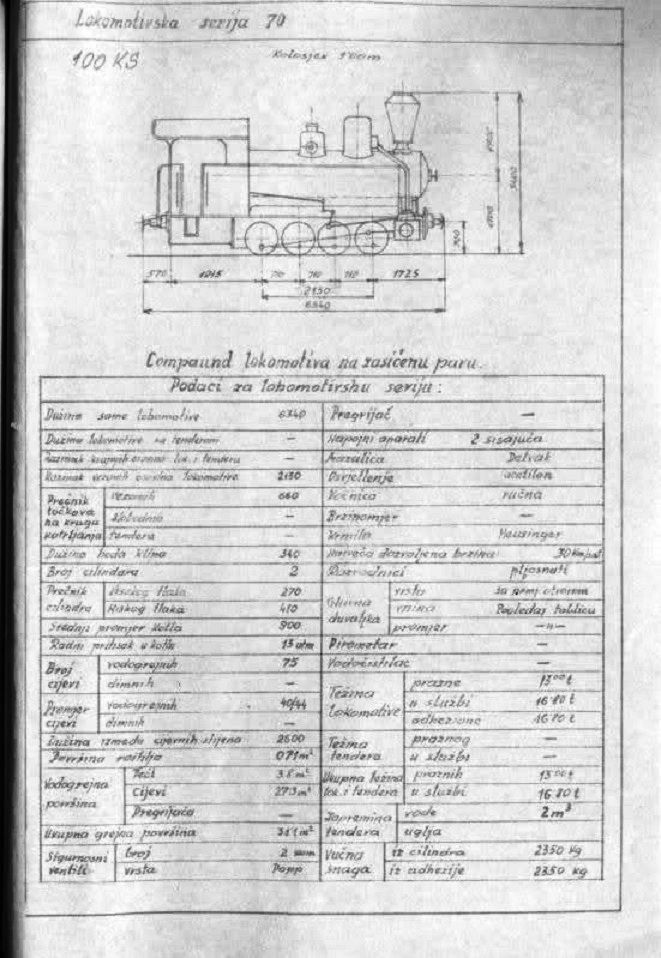 Lokomotivska serija 70
100 KS
Kolosjek 760mm
570 1215 710 710 710 1725
2130
6340
3400
Compaund lokomotiva na zasićenu paru.
Podaci za lokomotivsku seriju:
Dužina same lokomotive 6340
Dužina lokomotive sa tenderom —
Razmak krajnjih osovina lok. i tendera —
Razmak vezanih osovina lokomotive 2130
Prečnik točkova na krugu kotrljanja
vezanih 660
slobodnih —
tendera —
Dužina hoda klipa 340
Broj cilindara 2
Prečnik cilindra
Visokog tlaka 270
Niskog tlaka 410
Srednji promjer kotla 900
Radni pritisak u kotlu 13 atm
Broj cijevi
vodogrejnih 75
dimnih —
Promjer cijevi
vodogrejnih 40/44
dimnih —
Dužina između cijevnih stijena 2600
Površina roštilja 0.71 m²
Vodogrejna površina
Peći 3.8 m²
Cijevi 27.3 m²
Pregrijača —
Ukupna grejna površina 31.1 m²
Sigurnosni ventili
broj 2
vrsta Popp
Pregrijač —
Napojni aparati 2 sisajuća
Mazalica Detvak
Osvjetljenje acetilen
Kočnica ručna
Brzinomjer —
Krmilo Heusinger
Najveća dozvoljena brzina: 30 km/sat
Razvodnici pljosnati
Glavna duvaljka
vrsta sa nepromj. otvorom
visina Pogledaj tablicu
promjer —"—
Pirometar —
Vodočistilac —
Težina lokomotive
prazne 13.00 t
u službi 16.80 t
adhezione 16.80 t
Težina tendera
praznog —
u službi —
Ukupna težina lok. i tendera
praznih 13.00 t
u službi 16.80 t
Zapremina tendera
vode 2 m³
uglja
Vučna snaga
iz cilindra 2350 kg
iz adhezije 2350 kg